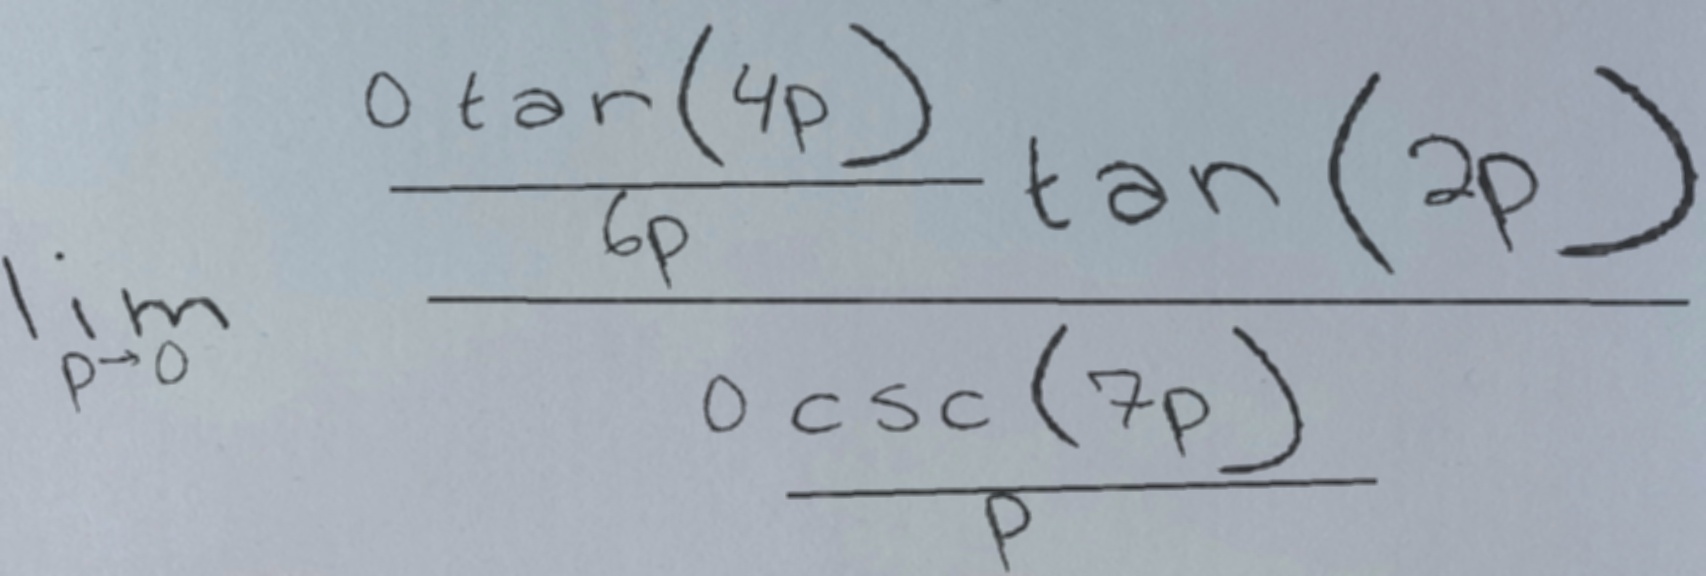 \lim_{p \to 0} \frac{\frac{0 \tan(4p)}{6p} \tan(2p)}{\frac{0 \csc(7p)}{p}}